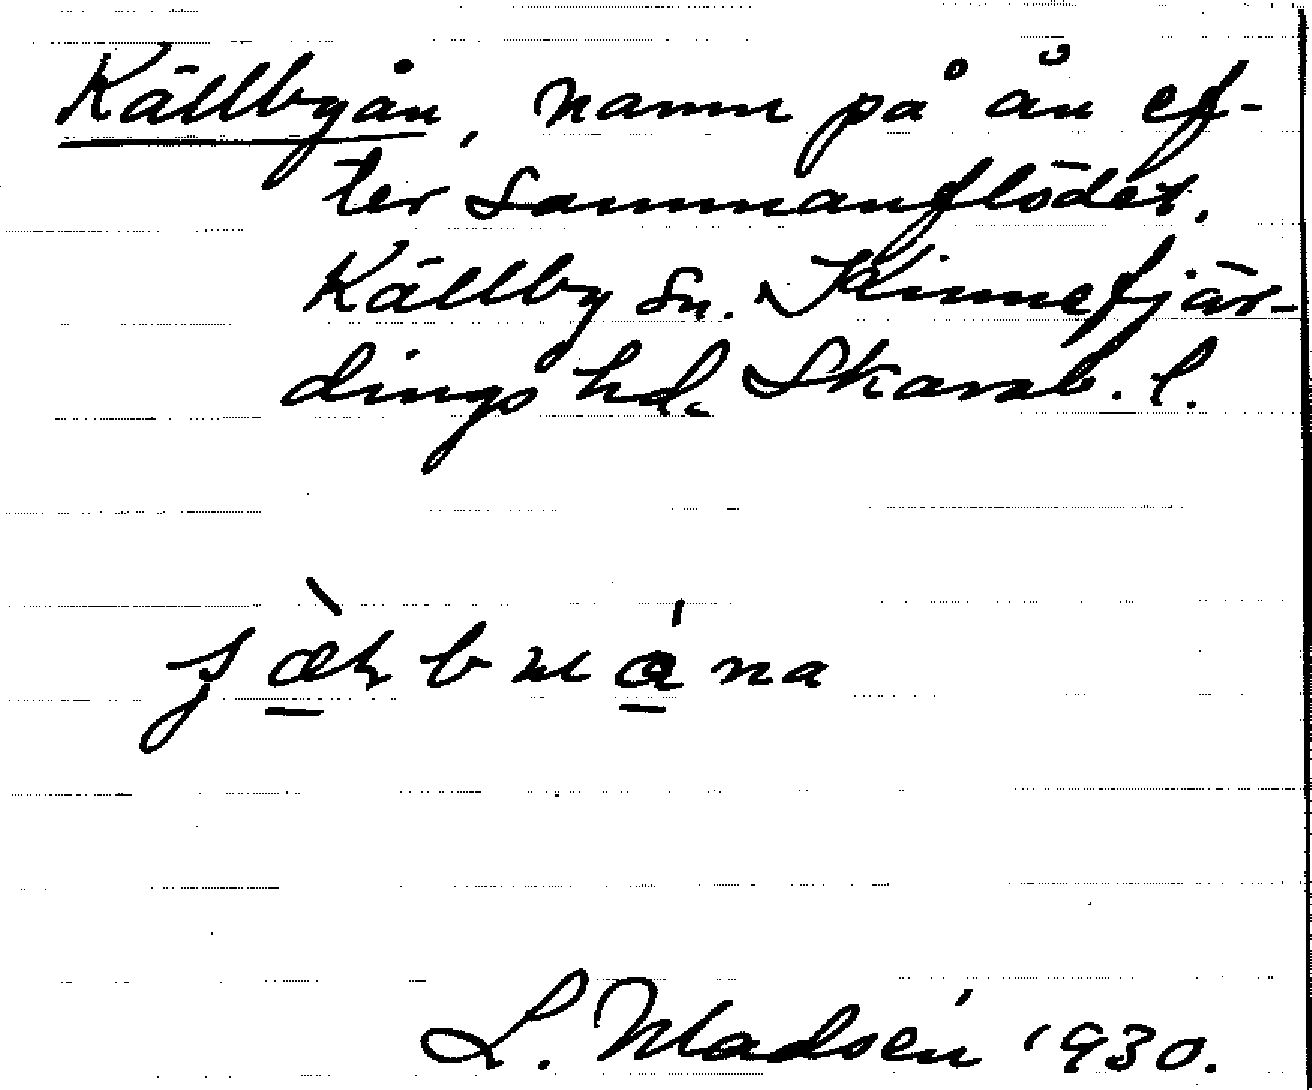 Källbyån, namn på ån ef-
ter sammanflödet.
Källby sn. Kinnefjär-
dings hd. Skarab. l.
L. Madsén 1930.